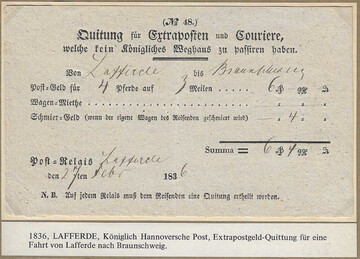 (No 48.)
Quitung für Extraposten und Couriere,
welche kein Königliches Weghaus zu passiren haben.
Von Lafferde bis Braunschweig
Post-Geld für 4 Pferde auf 3 Meilen 6 ggr ₰
Wagen-Miethe
Schmier-Geld (wenn der eigne Wagen des Reisenden geschmiert wird) 4
Summa 6 4 ggr ₰
Post-Relais Lafferde
den 27ten Febr 1836
N. B. Auf jedem Relais muß dem Reisenden eine Quitung ertheilt werden.
1836, LAFFERDE, Königlich Hannoversche Post, Extrapostgeld-Quittung für eine
Fahrt von Lafferde nach Braunschweig.